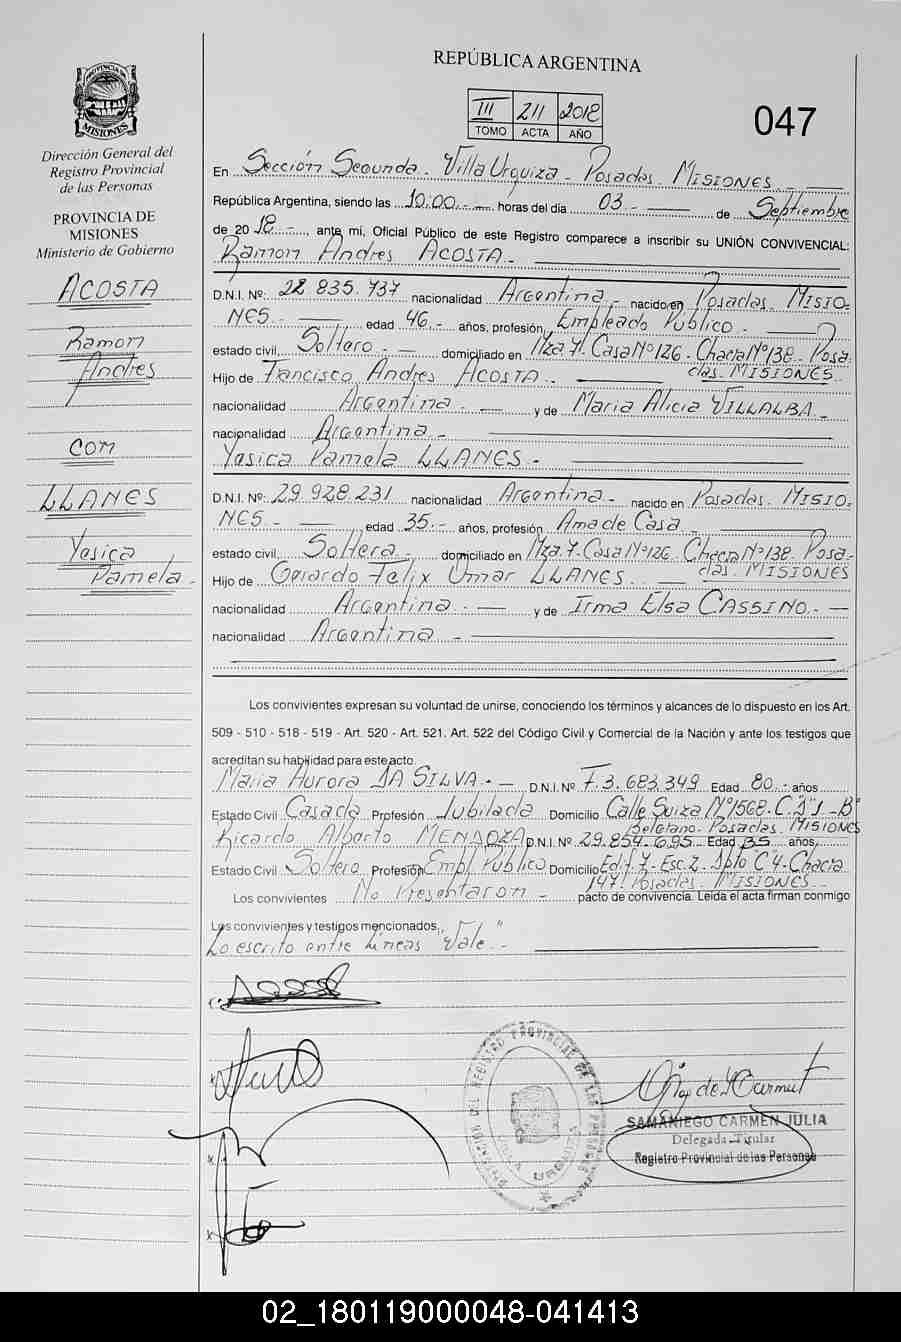 REPÚBLICA ARGENTINA
III 211 2018
TOMO ACTA AÑO
047
PROVINCIA DE
MISIONES
Dirección General del
Registro Provincial
de las Personas
PROVINCIA DE
MISIONES
Ministerio de Gobierno
ACOSTA
Ramon
Andres
con
LLANES
Yesica
Pamela
En Sección Segunda - Villa Urquiza - Posadas - MISIONES
República Argentina, siendo las 10:00.- horas del día 03.- de Septiembre
de 20 18.- ante mí, Oficial Público de este Registro comparece a inscribir su UNIÓN CONVIVENCIAL:
Ramon Andres ACOSTA.-
D.N.I. Nº: 22.835.737 nacionalidad Argentina.- nacido en Posadas. MISIO-
NES.- edad 46.- años, profesión Empleado Público.-
estado civil, Soltero.- domiciliado en Mza 7. Casa Nº 126 - Chacra Nº 138 - Posa-
Hijo de Francisco Andres ACOSTA.- das. MISIONES
nacionalidad Argentina.- y de Maria Alicia VILLALBA.-
nacionalidad Argentina.-
Yesica Pamela LLANES.-
D.N.I. Nº: 29.928.231 nacionalidad Argentina.- nacido en Posadas. MISIO-
NES.- edad 35.- años, profesión Ama de Casa
estado civil, Soltera.- domiciliado en Mza. 7. Casa Nº 126. Chacra Nº 138. Posa-
Hijo de Gerardo Felix Omar LLANES. das. MISIONES
nacionalidad Argentina.- y de Irma Elsa CASSINO.-
nacionalidad Argentina.-
Los convivientes expresan su voluntad de unirse, conociendo los términos y alcances de lo dispuesto en los Art.
509 - 510 - 518 - 519 - Art. 520 - Art. 521. Art. 522 del Código Civil y Comercial de la Nación y ante los testigos que
acreditan su habilidad para este acto.
Maria Aurora DA SILVA.- D.N.I. Nº F.3.683.349 Edad 80.- años
Estado Civil Casada Profesión Jubilada Domicilio Calle Suiza Nº 1568 - Cº
Belgrano. Posadas. MISIONES
Ricardo Alberto MENDOZA D.N.I. Nº 29.854.695 Edad 35 años,
Estado Civil Soltero Profesión Empl. Público Domicilio Edif. 7 - Esc. 2. Dpto "C" 4. Chacra
147. Posadas. MISIONES
Los convivientes No Presentaron - pacto de convivencia. Leída el acta firman conmigo
Los convivientes y testigos mencionados.
Lo escrito entre Líneas "Vale".-
SAMANIEGO CARMEN JULIA
Delegada Titular
Registro Provincial de las Personas
VILLA URQUIZA
02_180119000048-041413